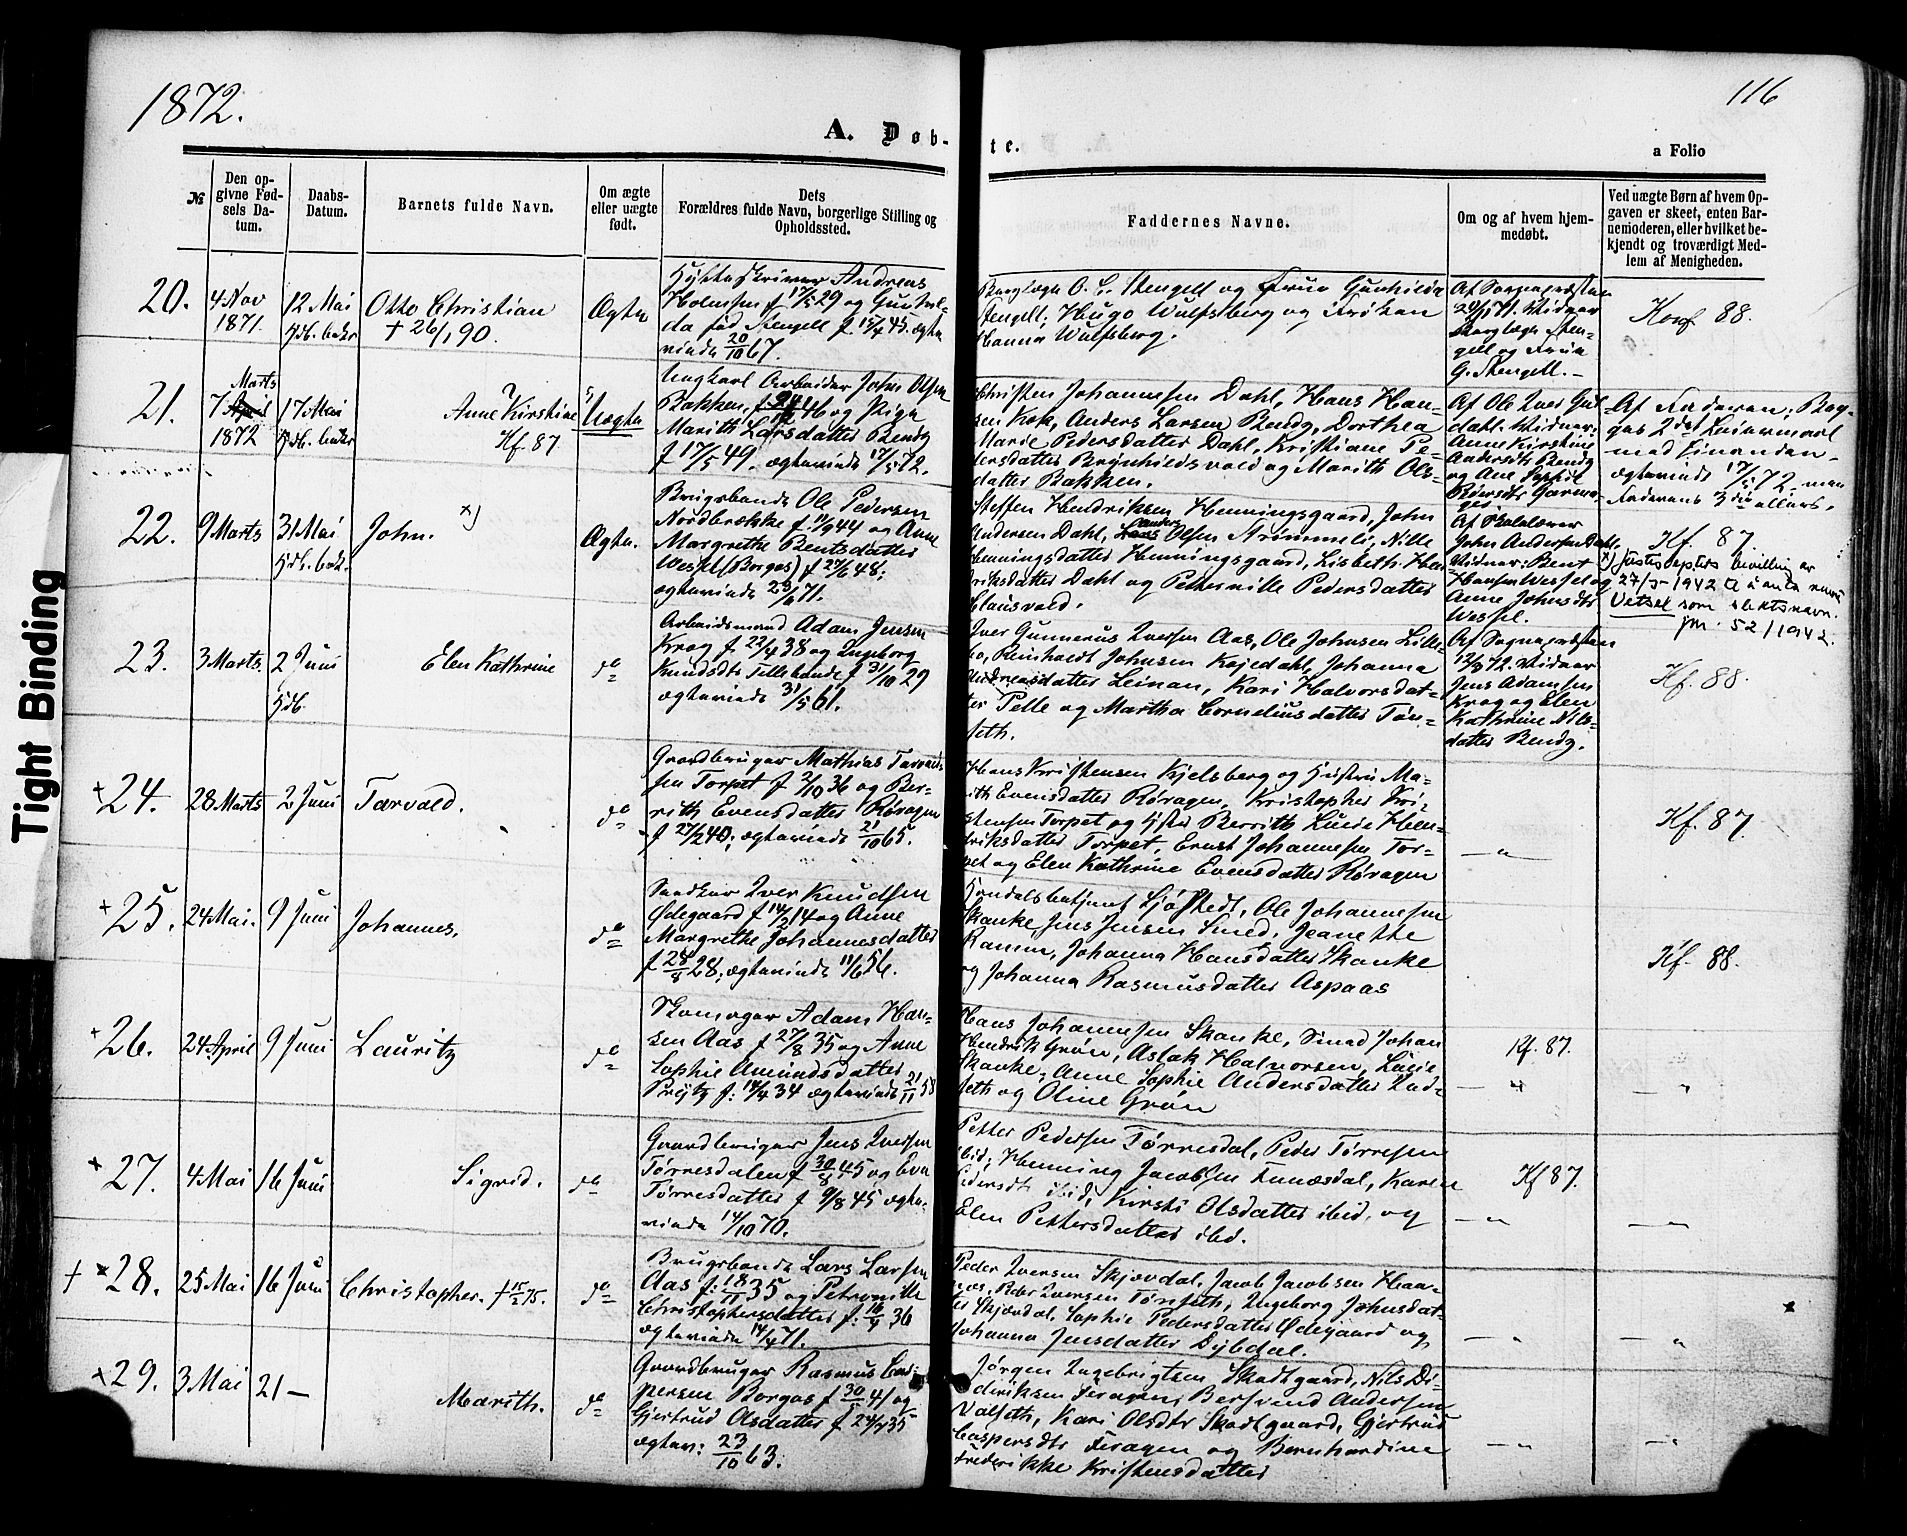 1872.
116
A. Døb-
te.
a Folio
№
Den op-
givne Fød-
sels Da-
tum.
Daabs-
Datum.
Barnets fulde Navn.
Om ægte
eller uægte
født.
Dets
Forældres fulde Navn, borgerlige Stilling og
Opholdssted.
Faddernes Navne.
Om og af hvem hjem-
medøbt.
Ved uægte Børn af hvem Op-
gaven er skeet, enten Bar-
nemoderen, eller hvilket be-
kjendt og troværdigt Med-
lem af Menigheden.
20.
4 Nov
1871.
12 Mai
Otto Christian
+ 26/1 90.
Ægte
Hytteskriver Andreas
Holmsen f 17/5 29 og Gunhil-
da fød Stengell f. 15/4 45. ægte
vinde 20/10 67.
Berglæge O. C. Stengell og Frue Gunhilda
Stengell, Hugo Wulfsberg og Frøken
Hanna Wulfsberg.
Af Sognepræsten
Widner
Berglæge Sten-
gell og Frue
G. Stengell.
Konf 88.
21.
Marts
7 April
1872
17 Mai
Anne Kirstine
Kf. 87
Uægte
Ungkarl Arbeider John Olsen
Bakken, 46 og Pige
Marith Larsdatter Bendz
f 17/5 49. ægteviede 17/5 72.
Christen Johannesen Dahl, Hans Han-
sen Kok, Anders Larsen Bendz, Dorthea
Marde Pedersdatter Dahl, Kristiane Pe-
dersdatter Brynhildsvold og Marith Ols-
datter Bakken.
Af Ole Iver Gul
dahl. Widner,
Anne Kirstine
Andersdtr Bendz
og Ane Sophie
Pedersdtr
Af Faderen; Beg-
ges 2det Leiermaal
med hinanden,
ægteviede 17/5 72, men
Faderens 3die ellers.
22.
9 Marts
31 Mai
John. x)
Ægte.
Brugsbonde Ole Pedersen
Nordbrække f. 11/9 44 og Anne
Margrethe Bentsdatter
Wessel (Borgos) f 27/6 48;
ægteviede 71.
Steffen Hendriksen Henningsgaard, John
Andersen Dahl, Olsen Strømmeli, Nille
Henningsdatter Henningsgaard, Lisbeth Hen-
driksdatter Dahl og Petternille Pedersdatter
Clausvold.
Af Skolelærer
John Andersen Dahl.
Widner: Bent
Hansen Wessel og
Anne Johnsdtr
Wessel.
Kf. 87
x) Justisdeptets bevilling av
27/5-1942 til å anta navnet
Vetsel som slektsnavn.
jnr. 52/1942.
23.
3 Marts.
2 Juni
Elen Kathrine
do
Arbeidsmand Adam Jensen
Krog f. 22/4 38 og Ingeborg
Knudsdtr Tillebonde f 31/10 29
ægteviede 31/5 61.
Iver Gunnerus Iversen Aas, Ole Johnsen Lille-
bo, Reinhardt Johnsen Kojedahl, Johanna
Andreasdatter Leinan, Kari Halvorsdat-
ter Pelle og Martha Corneliusdatter Tøn-
seth.
Af Sognepræsten
12/3 72. Widner
Jens Adamsen
Krog og Elen
Kathrine Nils-
datter Bendz.
Kf. 88.
+ 24.
28 Marts
2 Juni
Tarvald.
do
Grovbruger Mathias Tarvald-
sen Torpet f 2/10 36 og Ber-
rith Evensdatter Røragen
f 27/2 40; ægteviede 21/10 65.
Hans Kristensen Kjelsberg og Hustru Ma-
rith Evensdatter Røragen, Kristopher Kri-
stensen Torpet og Søster Berrith Lucie Hen-
driksdatter Torpet, Ernst Johannesen Tor-
pet og Elen Kathrine Evensdatter Røragen
— " —
Kf. 87
+ 25.
24 Mai.
9 Juni
Johannes.
do
Iver Knudsen
Ødegaard f 14/2 14 og Anne
Margrethe Johannesdatter
f 28/8 28; ægteviede 11/6 56.
Handelsbetjent Sjøstedt, Ole Johannesen
Skanke, Jens Jensen Smed, Jeanette
Ramm, Johanna Hansdatter Skanke
og Johanna Rasmusdatter Aspaas
Kf. 88.
+ 26.
24 April
9 Juni
Lauritz
do
Skomager Adam Han-
sen Aas f 27/8 35 og Anne
Sophie Amundsdatter
Prytz f: 14/4 34 ægteviede 21/11 58
Hans Johannesen Skanke, Smed Johan
Hendrik Grøn, Aslak Halvorsen, Lucie
Skanke, Anne Sophie Andersdatter Ind-
seth og Oline Grøn
Kf. 87.
— " —
— " —
x 27.
4 Mai
16 Juni
Sigrid.
do
Grovbruger Jens Iversen
Tørresdalen f 30/8 45 og Eva
Tørresdatter f 9/8 45 ægte-
viede 14/10 70.
Petter Pedersen Tørresdal, Peder Tørresen
ibid, Henning Jacobsen Funæsdal, Karen
Pedersdt ibid, Kirsti Olsdatter ibid, og
Elen Pettersdatter ibid.
Kf 87.
— " —
— " —
+ x 28.
25 Mai
16 Juni
Christopher. + 15/2 75.
do
Brugsbonde Lars Larsen
Aas f: 18/11 35 og Petronille
Christophersdatter f: 16/4 36
ægteviede 14/4 71.
Peder Iversen Skjøvdal, Jacob Jacobsen Haa-
næs, Peder Iversen Tønseth, Ingeborg Johnsdat-
ter Skjøvdal, Sophie Pedersdatter Ødegaard og
Johanna Jensdatter Dybdal.
— " —
— " —
x 29.
3 Mai
21 —
Marith.
do
Grovbruger Rasmus Cas-
persen Borgos f 30/ 41 og
Gjertrud Olsdatter f 24/7 35
ægtev: 23/10 63.
Jørgen Ingebrigtsen Skotgaard, Nils Di-
deriksen Feragen, Bersvend Andersen
Valseth, Kari Olsdtr Skotgaard, Gjertrud
Caspersdtr Feragen og Bernhardine
Frederikke Kristensdatter
— " —
— " —
Tight Binding